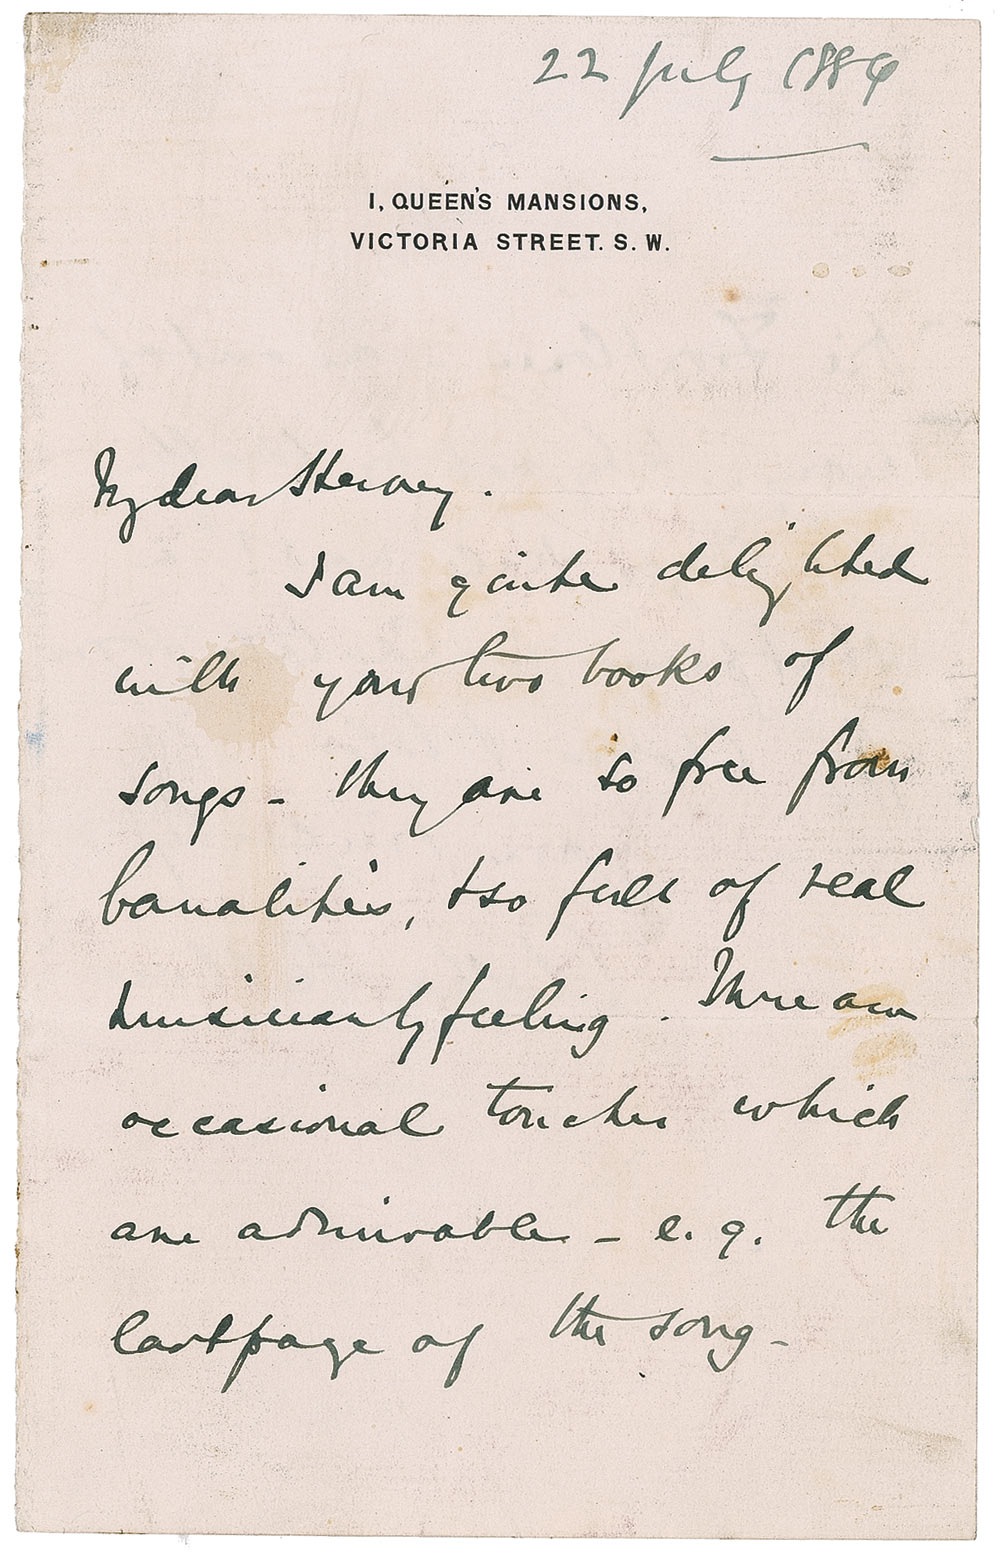 22 July 1884
1, QUEEN'S MANSIONS,
VICTORIA STREET. S. W.
My dear Hervey.
I am quite delighted
with your two books of
songs - they are so free from
banalities, & so full of real
musicianly feeling. There are
occasional touches which
are admirable - e.g. the
last page of the song -